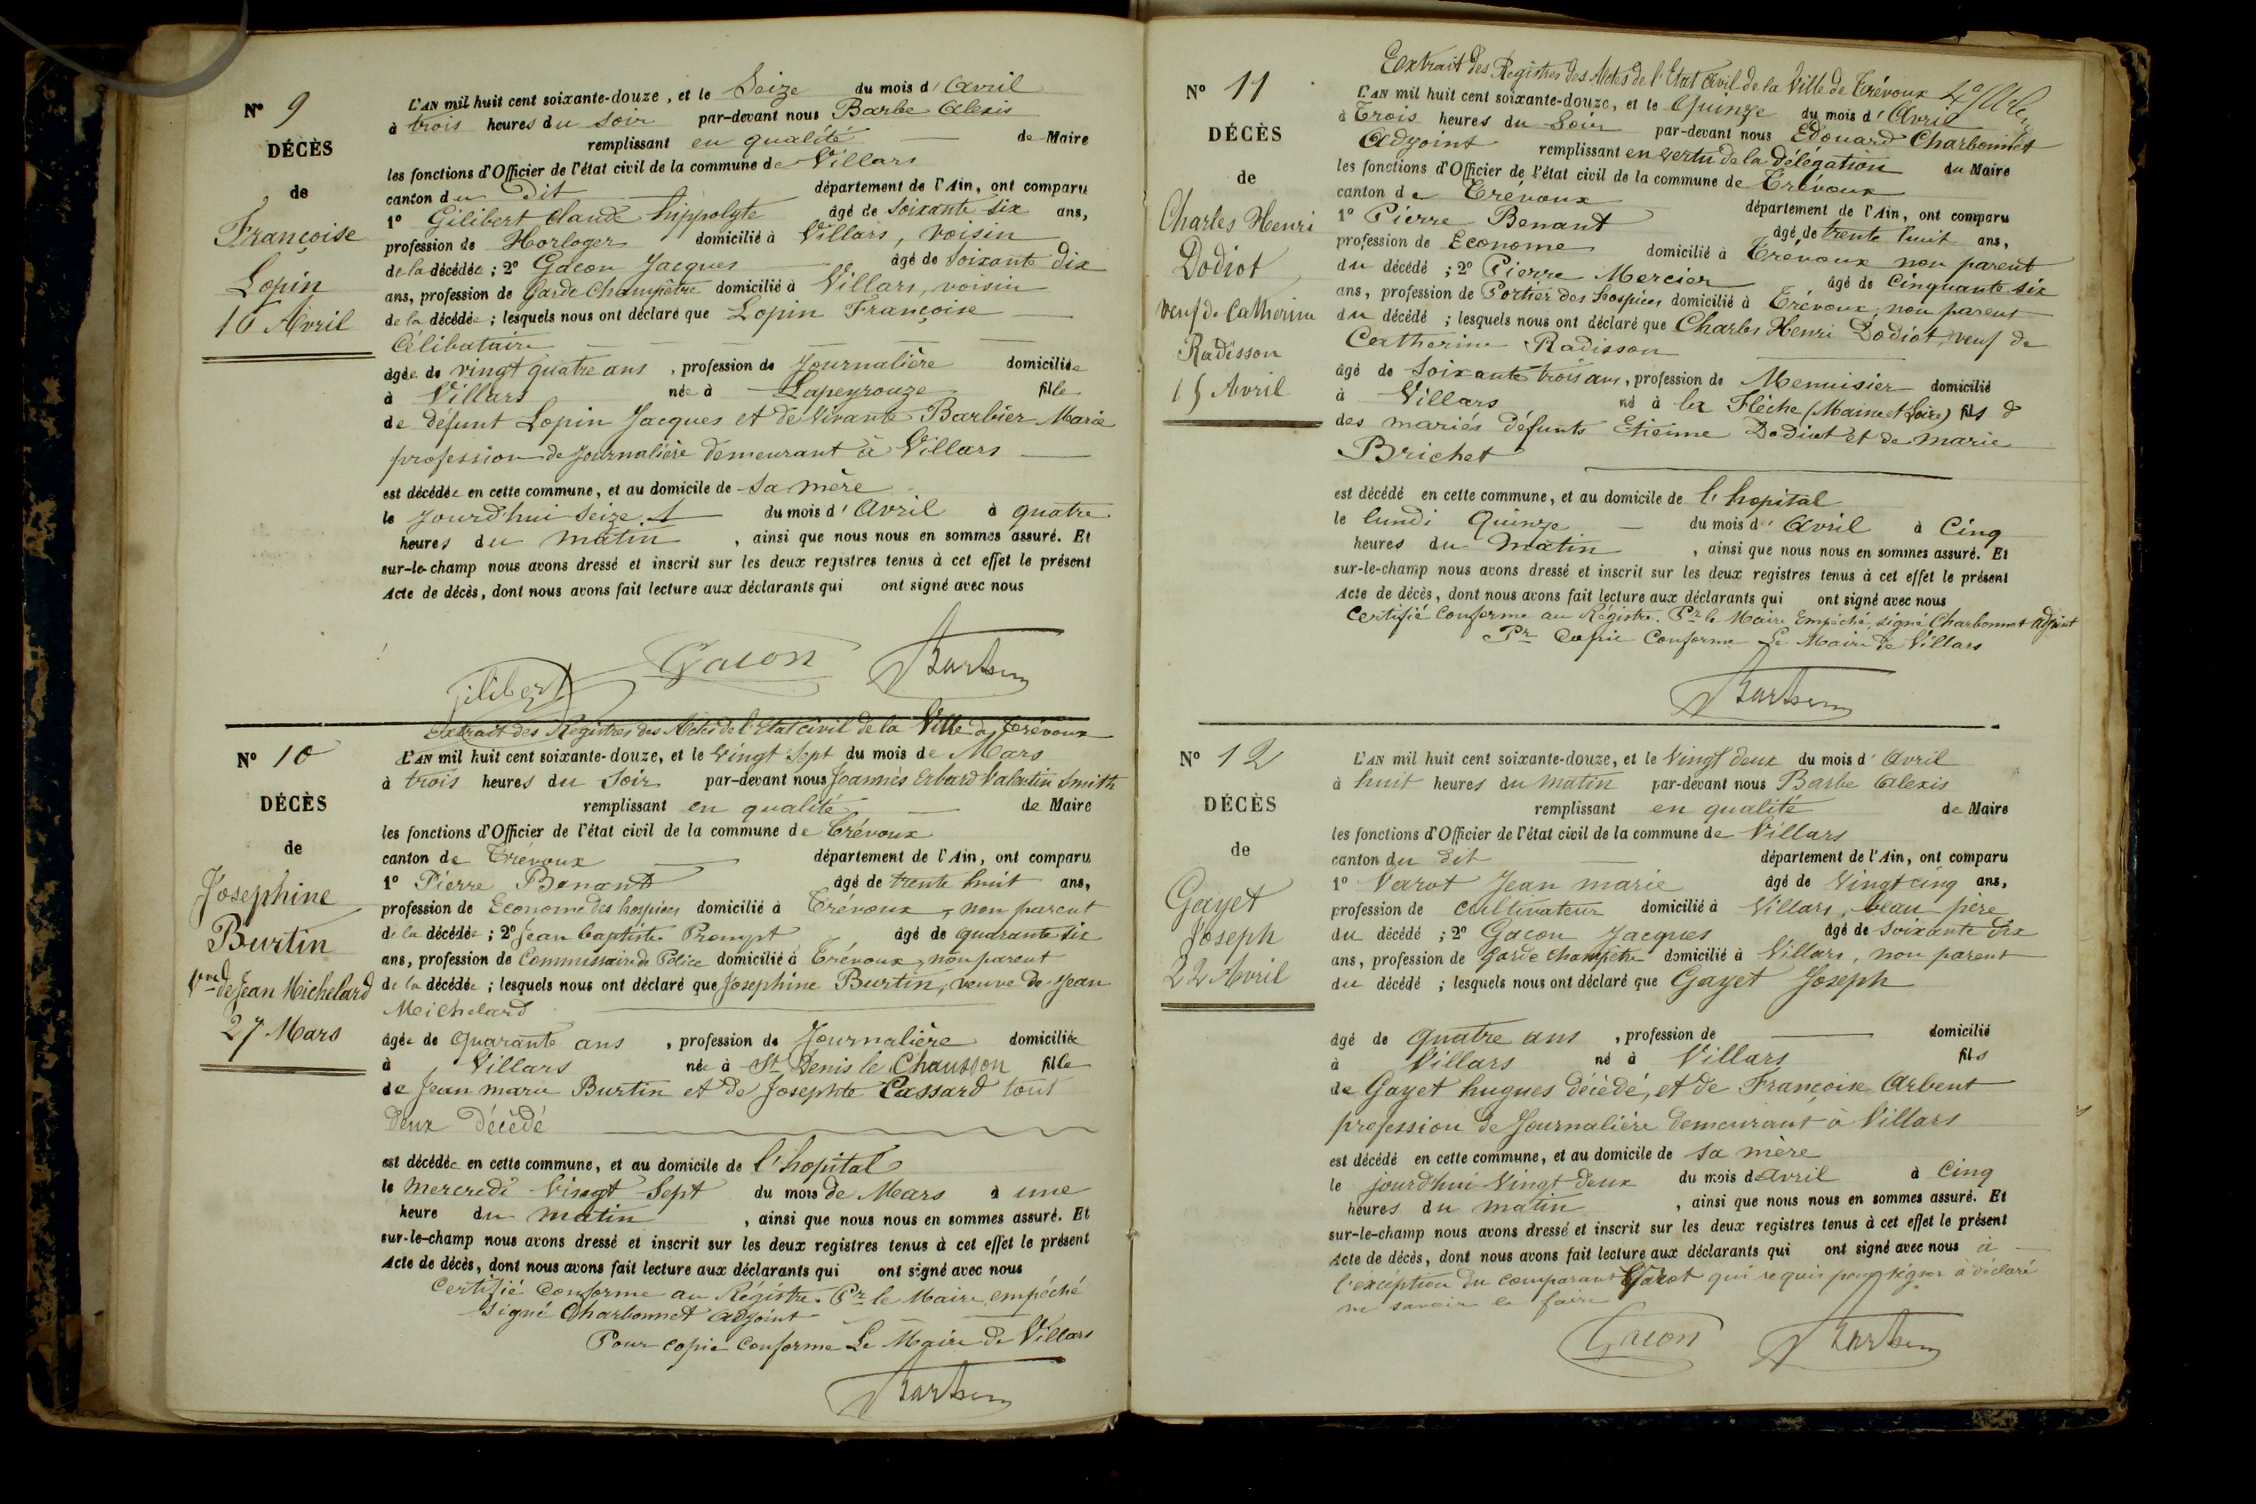 N° 9
DÉCÈS
de
Françoise
Lopin
16 Avril
L'AN mil huit cent soixante-douze, et le Seize du mois d'Avril
à trois heures du soir par-devant nous Barbe Alexis
remplissant en qualité de Maire
les fonctions d'Officier de l'état civil de la commune de Villars
canton du dit département de l'Ain, ont comparu
1° Gilibert Claude hippolyte âgé de Soixante six ans,
profession de Horloger domicilié à Villars, voisin
de la décédée ; 2° Gacon Jacques âgé de Soixante dix
ans, profession de Garde Champêtre domicilié à Villars, voisin
de la décédée ; lesquels nous ont déclaré que Lopin Françoise
Célibataire
âgée de vingt quatre ans , profession de Journalière domiciliée
à Villars née à Lapeyrouze fille
de défunt Lopin Jacques et de vivante Barbier Marie
profession de Journalière demeurant à Villars
est décédée en cette commune, et au domicile de sa mère
le jourd'hui Seize du mois d'Avril à quatre
heures du matin , ainsi que nous nous en sommes assuré. Et
sur-le-champ nous avons dressé et inscrit sur les deux registres tenus à cet effet le présent
Acte de décès, dont nous avons fait lecture aux déclarants qui ont signé avec nous
Gilibert Gacon
N° 10
DÉCÈS
de
Josephine
Burtin
Vve de Jean Michelard
27 Mars
Extrait des Registres des Actes de l'Etat civil de la Ville de Trévoux
L'AN mil huit cent soixante-douze, et le Vingt Sept du mois de Mars
à trois heures du Soir par-devant nous Joannès Erbard Valentin Smith
remplissant en qualité de Maire
les fonctions d'Officier de l'état civil de la commune de Trévoux
canton de Trévoux département de l'Ain, ont comparu
1° Pierre Benant âgé de trente huit ans,
profession de Econome des hospices domicilié à Trévoux, non parent
de la décédée ; 2° Jean baptiste Prompt âgé de quarante six
ans, profession de Commissaire de Police domicilié à Trévoux, non parent
de la décédée ; lesquels nous ont déclaré que Josephine Burtin, veuve de Jean
Michelard
âgée de Quarante ans , profession de Journalière domiciliée
à Villars née à St Denis le Chausson fille
de Jean marie Burtin et de Josephte Cassard tout
deux décédé
est décédée en cette commune, et au domicile de l'hopital
le mercredi Vingt Sept du mois de Mars à une
heure du matin , ainsi que nous nous en sommes assuré. Et
sur-le-champ nous avons dressé et inscrit sur les deux registres tenus à cet effet le présent
Acte de décès, dont nous avons fait lecture aux déclarants qui ont signé avec nous
Certifié Conforme au Régistre. Pr le Maire empéché
signé Charbonnet adjoint
Pour copie conforme Le Maire de Villars
N° 11
DÉCÈS
de
Charles Henri
Dodiot
veuf de Catherine
Radisson
15 Avril
Extrait des Registres des Actes de l'Etat Civil de la Ville de Trévoux
L'AN mil huit cent soixante-douze, et le Quinze du mois d'Avril
à Trois heures du Soir par-devant nous Edouard Charbonnet
Adjoint remplissant en vertu de la délégation du Maire
les fonctions d'Officier de l'état civil de la commune de Trévoux
canton de Trévoux département de l'Ain, ont comparu
1° Pierre Benant âgé de trente huit ans,
profession de Econome domicilié à Trévoux non parent
du décédé ; 2° Pierre Mercier âgé de Cinquante six
ans, profession de Portier des hospices domicilié à Trévoux, non parent
du décédé ; lesquels nous ont déclaré que Charles Henri Dodiot, veuf de
Catherine Radisson
âgé de Soixante trois ans , profession de Menuisier domicilié
à Villars né à la Flèche (Maine et Loire) fils d
des mariés défunts Etienne Dodiot et de marie
Brichet
est décédé en cette commune, et au domicile de l'hopital
le lundi Quinze du mois d'Avril à Cinq
heures du matin , ainsi que nous nous en sommes assuré. Et
sur-le-champ nous avons dressé et inscrit sur les deux registres tenus à cet effet le présent
Acte de décès, dont nous avons fait lecture aux déclarants qui ont signé avec nous
Certifié Conforme au Régistre. Pr le Maire Empéché, signé Charbonnet adjoint
Pr Copie Conforme Le Maire de Villars
N° 12
DÉCÈS
de
Gayet
Joseph
22 Avril
L'AN mil huit cent soixante-douze, et le Vingt deux du mois d'Avril
à huit heures du matin par-devant nous Barbe Alexis
remplissant en qualité de Maire
les fonctions d'Officier de l'état civil de la commune de Villars
canton du dit département de l'Ain, ont comparu
1° Varot Jean marie âgé de Vingt cinq ans,
profession de cultivateur domicilié à Villars, beau père
du décédé ; 2° Gacon Jacques âgé de soixante dix
ans, profession de garde champêtre domicilié à Villars, non parent
du décédé ; lesquels nous ont déclaré que Gayet Joseph
âgé de quatre ans , profession de domicilié
à Villars né à Villars fils
de Gayet hugues décédé, et de Françoise Arbent
profession de Journalière demeurant à Villars
est décédé en cette commune, et au domicile de sa mère
le jourd'hui Vingt deux du mois d'Avril à Cinq
heures du matin , ainsi que nous nous en sommes assuré. Et
sur-le-champ nous avons dressé et inscrit sur les deux registres tenus à cet effet le présent
Acte de décès, dont nous avons fait lecture aux déclarants qui ont signé avec nous à
l'exception du comparant Varot qui requis pour signer a déclaré
ne savoir le faire
Gacon